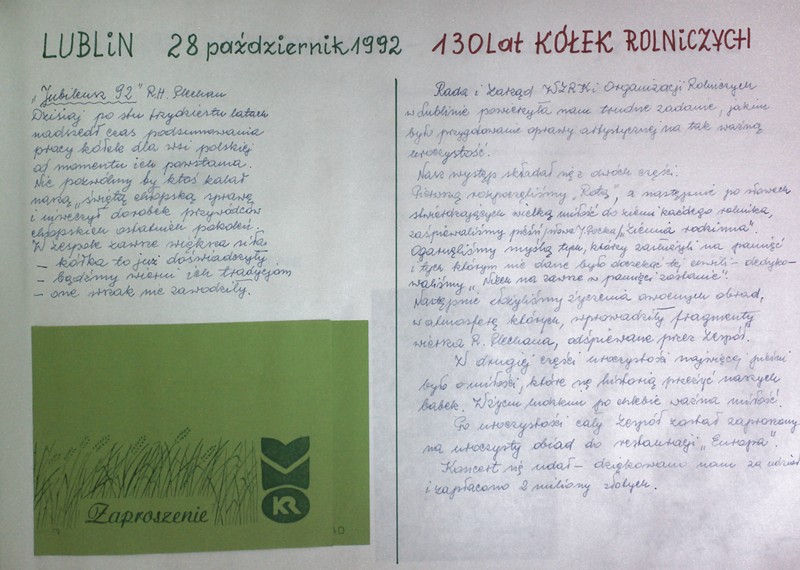 LUBLiN 28 październik 1992 130 Lat KÓŁEK ROLNiCZYCH
„Jubileusz 92" R.H. Plechan
Dzisiaj po stu trzydziestu latach
nadszedł czas podsumowania
pracy kółek dla wsi polskiej
od momentu ich powstania.
Nie pozwólmy by ktoś kalał
naszą „świętą chłopską sprawę
i niweczył dorobek przywódców
chłopskich ostatnich pokoleń.
W zespole zawsze większa siła
– kółka to już doświadczyły
– bądźmy wierni ich tradycjom
– one wszak nie zawodziły.
Zaproszenie
KR
Rada i Zarząd WZRK i Organizacji Rolniczych
w Lublinie powierzyła nam trudne zadanie, jakim
było przygotowanie oprawy artystycznej na tak ważną
uroczystość.
Nasz występ składał się z dwóch części.
Pierwszą rozpoczęliśmy „Rotą", a następnie po słowach
stwierdzających wielką miłość do ziemi każdego rolnika,
zaśpiewaliśmy pieśń /słowa J. Pocka/ „Ziemia rodzinna".
Ogarnęliśmy myślą tych, którzy zasłużyli na pamięć
i tych którym nie dane było doczekać tej chwili – dedyko-
waliśmy „Niech na zawsze w pamięci zostanie".
Następnie złożyliśmy życzenia owocnych obrad,
w atmosferę których, wprowadziły fragmenty
wiersza R. Plechana, odśpiewane przez Zespół.
W drugiej części uroczystości najwięcej pieśni
było o miłości, które są historią przeżyć naszych
babek. W życiu ludzkim po chlebie ważna miłość.
Po uroczystości cały Zespół został zaproszony
na uroczysty obiad do restauracji „Europa".
Koncert się udał – dziękowano nam za udział
i zapłacono 2 miliony złotych.